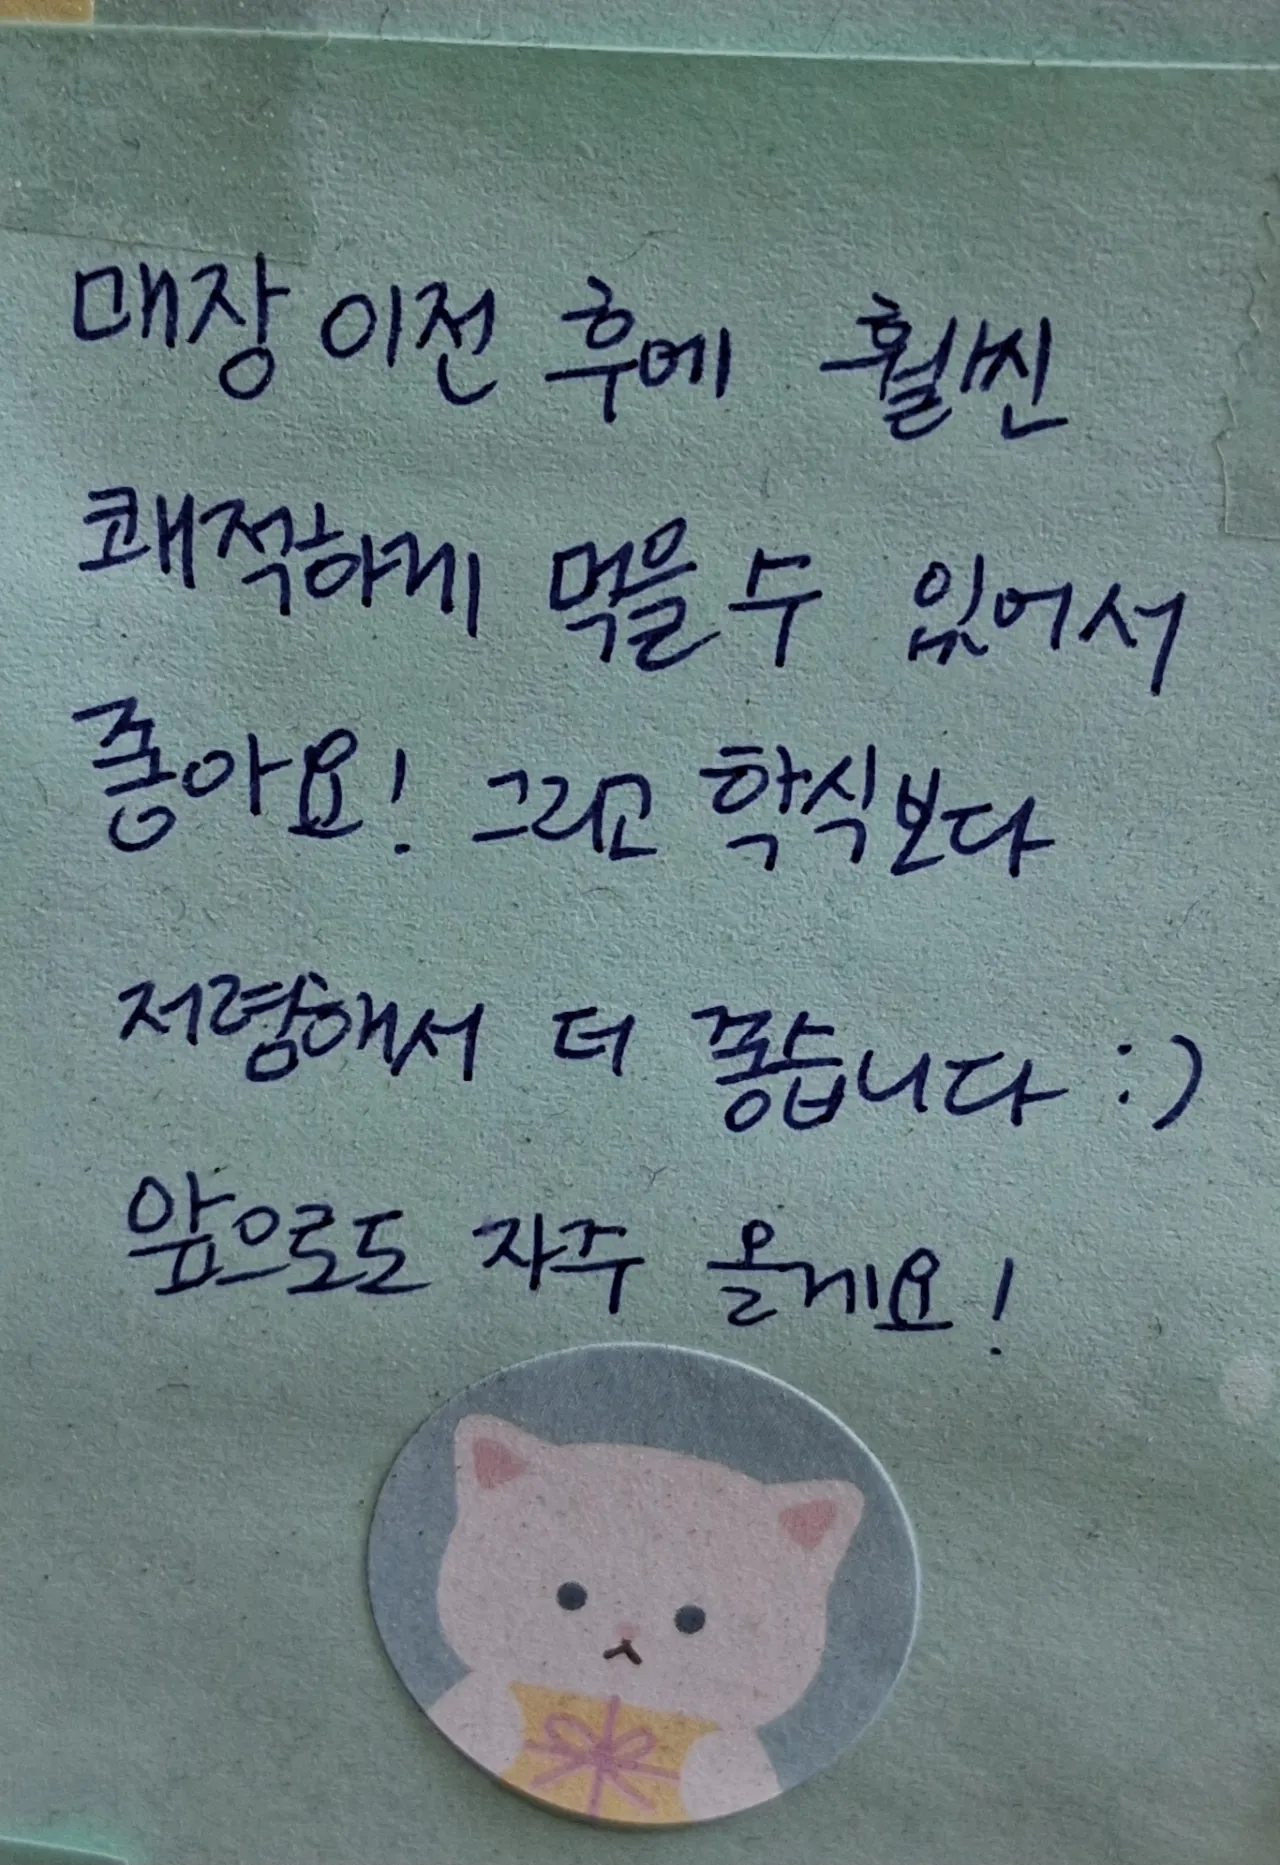 매장 이전 후에 훨씬
쾌적하게 먹을 수 있어서
좋아요! 그리고 학식보다
저렴해서 더 좋습니다 :)
앞으로도 자주 올게요!